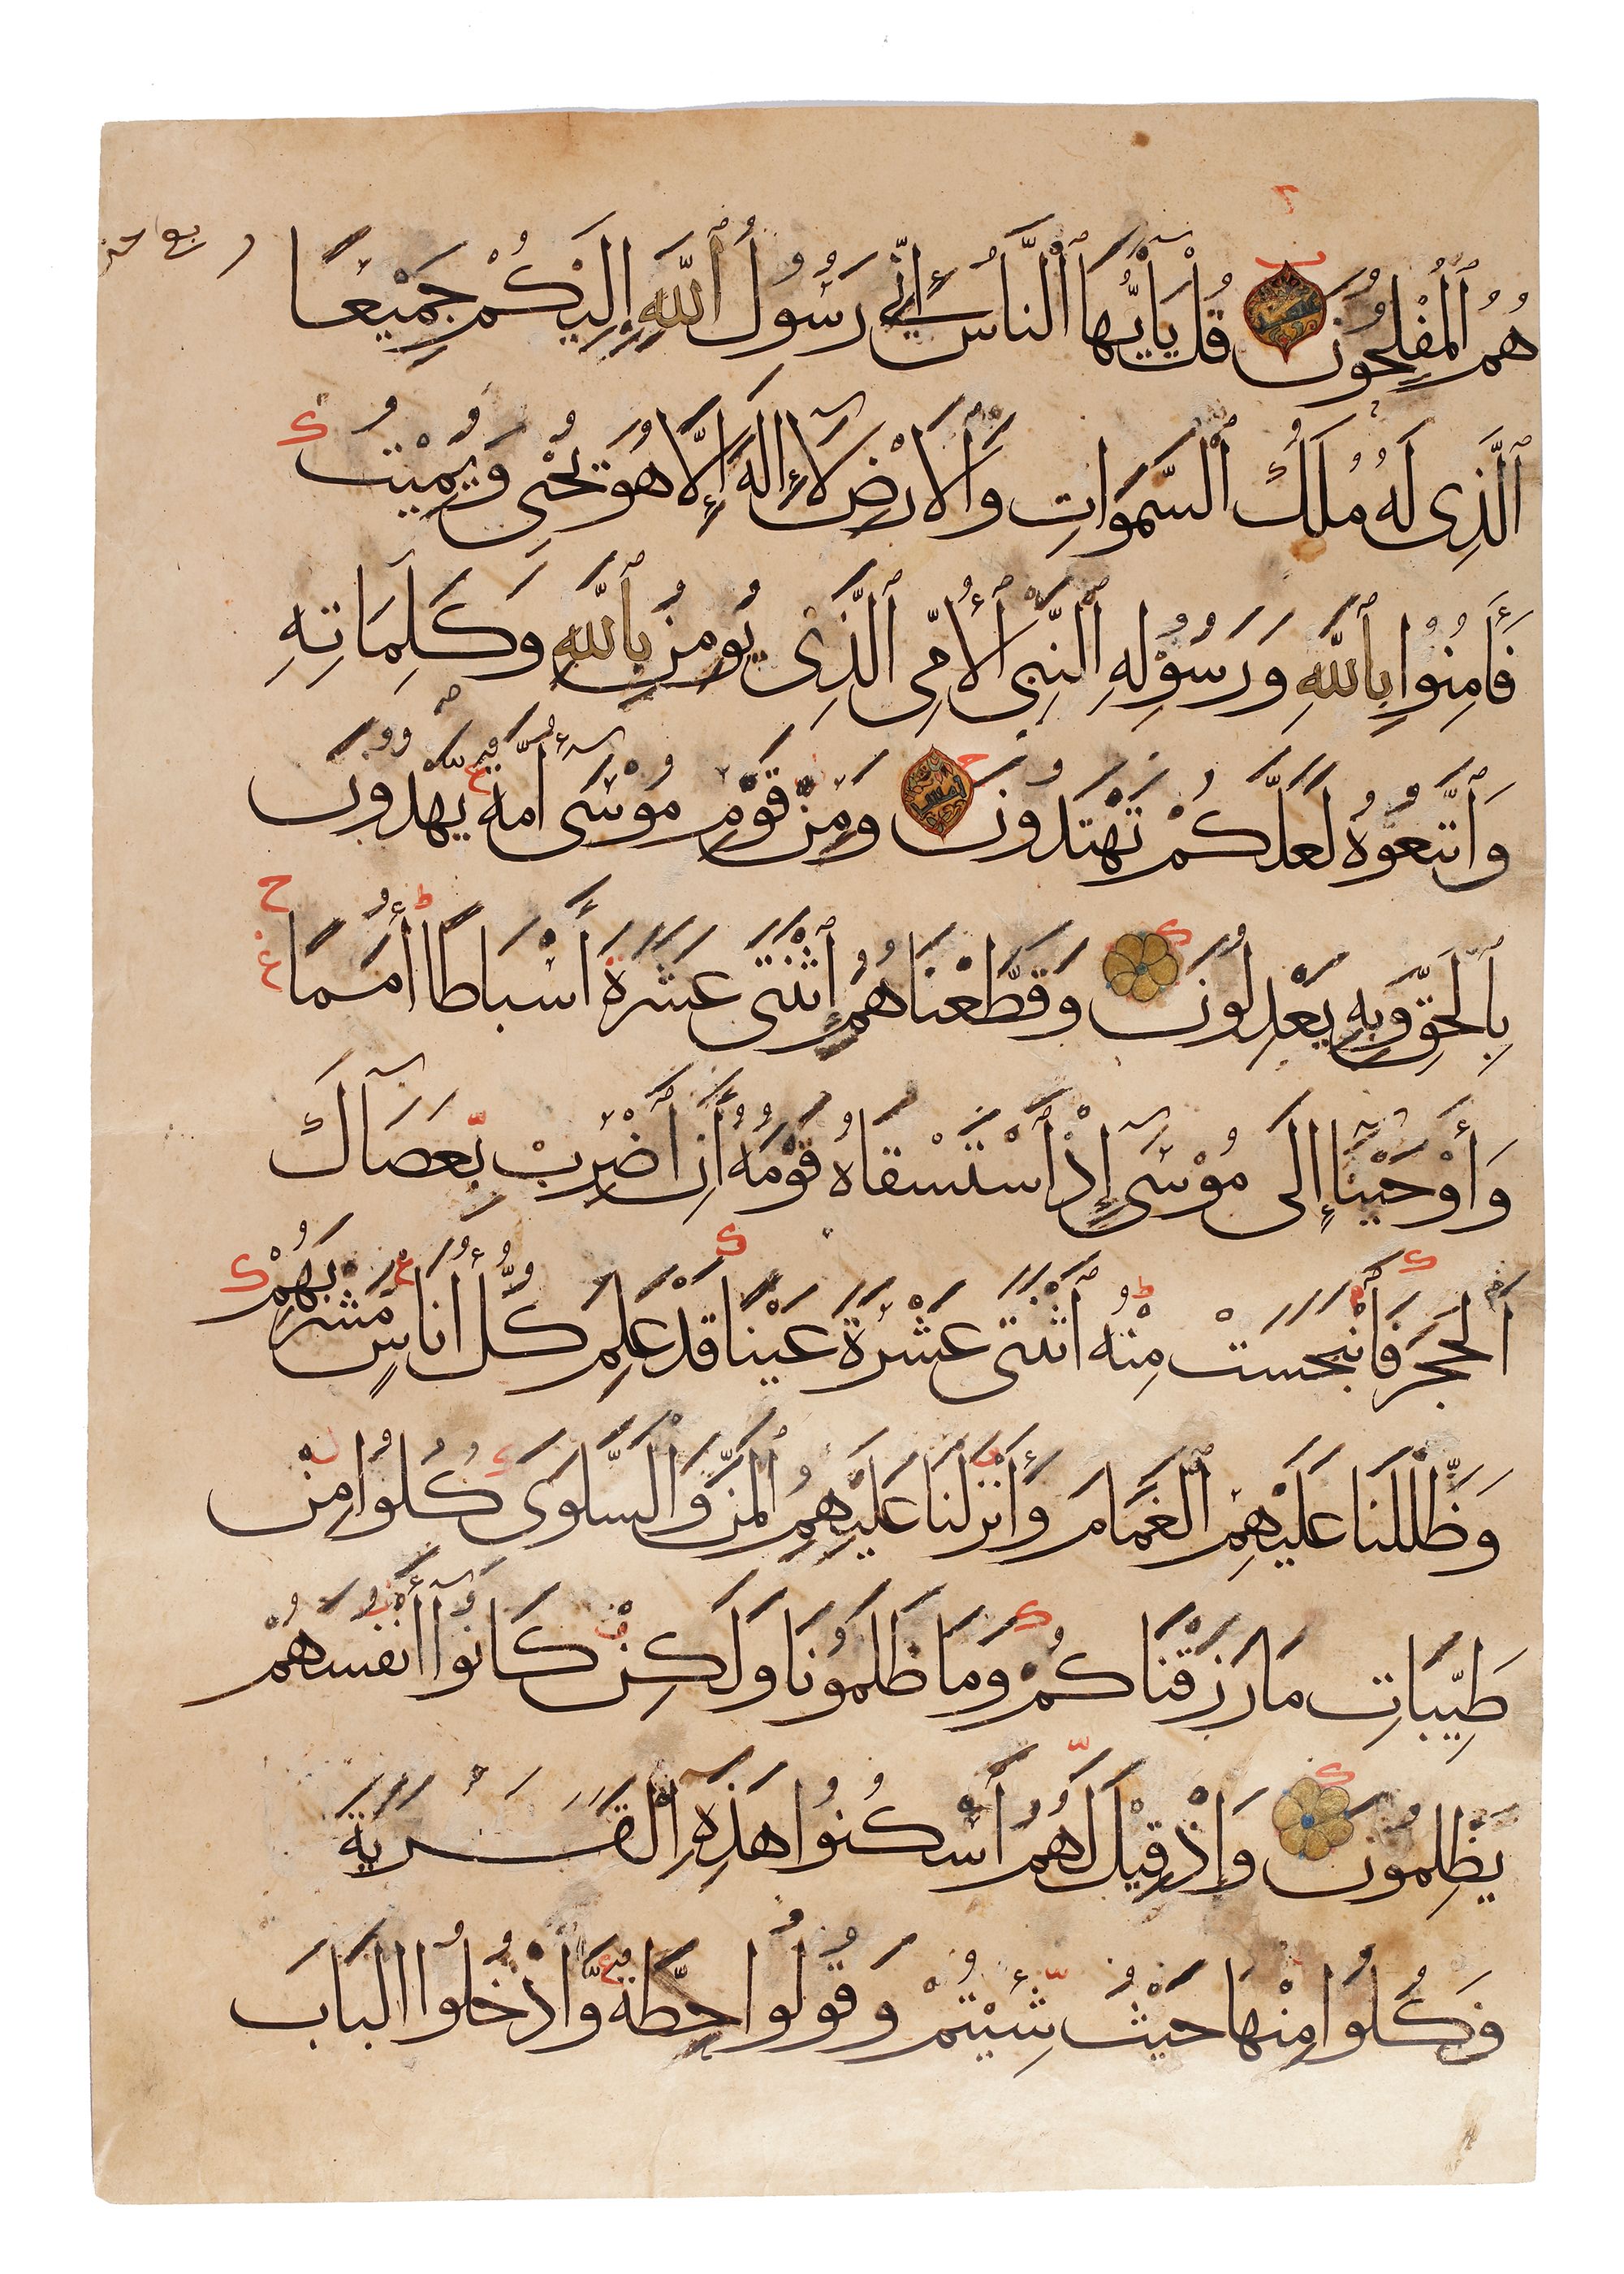 هُمُ ٱلْمُفْلِحُونَ قُلْ يَٰٓأَيُّهَا ٱلنَّاسُ إِنِّى رَسُولُ ٱللَّهِ إِلَيْكُمْ جَمِيْعًا
ٱلَّذِى لَهُ مُلْكُ ٱلسَّمَوَاتِ وَٱلْأَرْضِ لَآ إِلَهَ إِلَّا هُوَ يُحْيِى وَيُمِيْتُ
فَـَٔامِنُوا بِٱللَّهِ وَرَسُوْلِهِ ٱلنَّبِىِّ ٱلْأُمِّىِّ ٱلَّذِى يُومِنُ بِٱللَّهِ وَكَلِمَاتِهِ
وَٱتَّبِعُوْهُ لَعَلَّكُمْ تَهْتَدُونَ وَمِنْ قَوْمِ مُوْسَىٓ أُمَّةٌ يَّهْدُوْنَ
بِٱلْحَقِّ وَبِهِ يَعْدِلُوْنَ وَقَطَّعْنَاهُمُ ٱثْنَتَىْ عَشْرَةَ أَسْبَاطًا أُمَمًا
وَأَوْحَيْنَآ إِلَى مُوْسَىٓ إِذِ ٱسْتَسْقَاهُ قَوْمُهُٓ أَنِ ٱضْرِبْ بِّعَصَاكَ
ٱلْحَجَرَ فَٱنْبَجَسَتْ مِنْهُ ٱثْنَتَىْ عَشْرَةَ عَيْنًا قَدْ عَلِمَ كُلُّ أُنَاسٍ مَّشْرَبَهُمْ
وَظَلَّلْنَا عَلَيْهِمُ ٱلْغَمَامَ وَأَنْزَلْنَا عَلَيْهِمُ ٱلْمَنَّ وَٱلسَّلْوَى كُلُوا مِنْ
طَيِّبَاتِ مَا رَزَقْنَاكُمْ وَمَا ظَلَمُوْنَا وَلَكِنْ كَانُوٓا أَنْفُسَهُمْ
يَظْلِمُونَ وَإِذْ قِيْلَ لَّهُمُ ٱسْكُنُوا هَذِهِ ٱلْقَرْيَةَ
وَكُلُوا مِنْهَا حَيْثُ شِّيْتُمْ وَقُولُوا حِطَّةٌ وَّٱدْخُلُوا ٱلْبَابَ